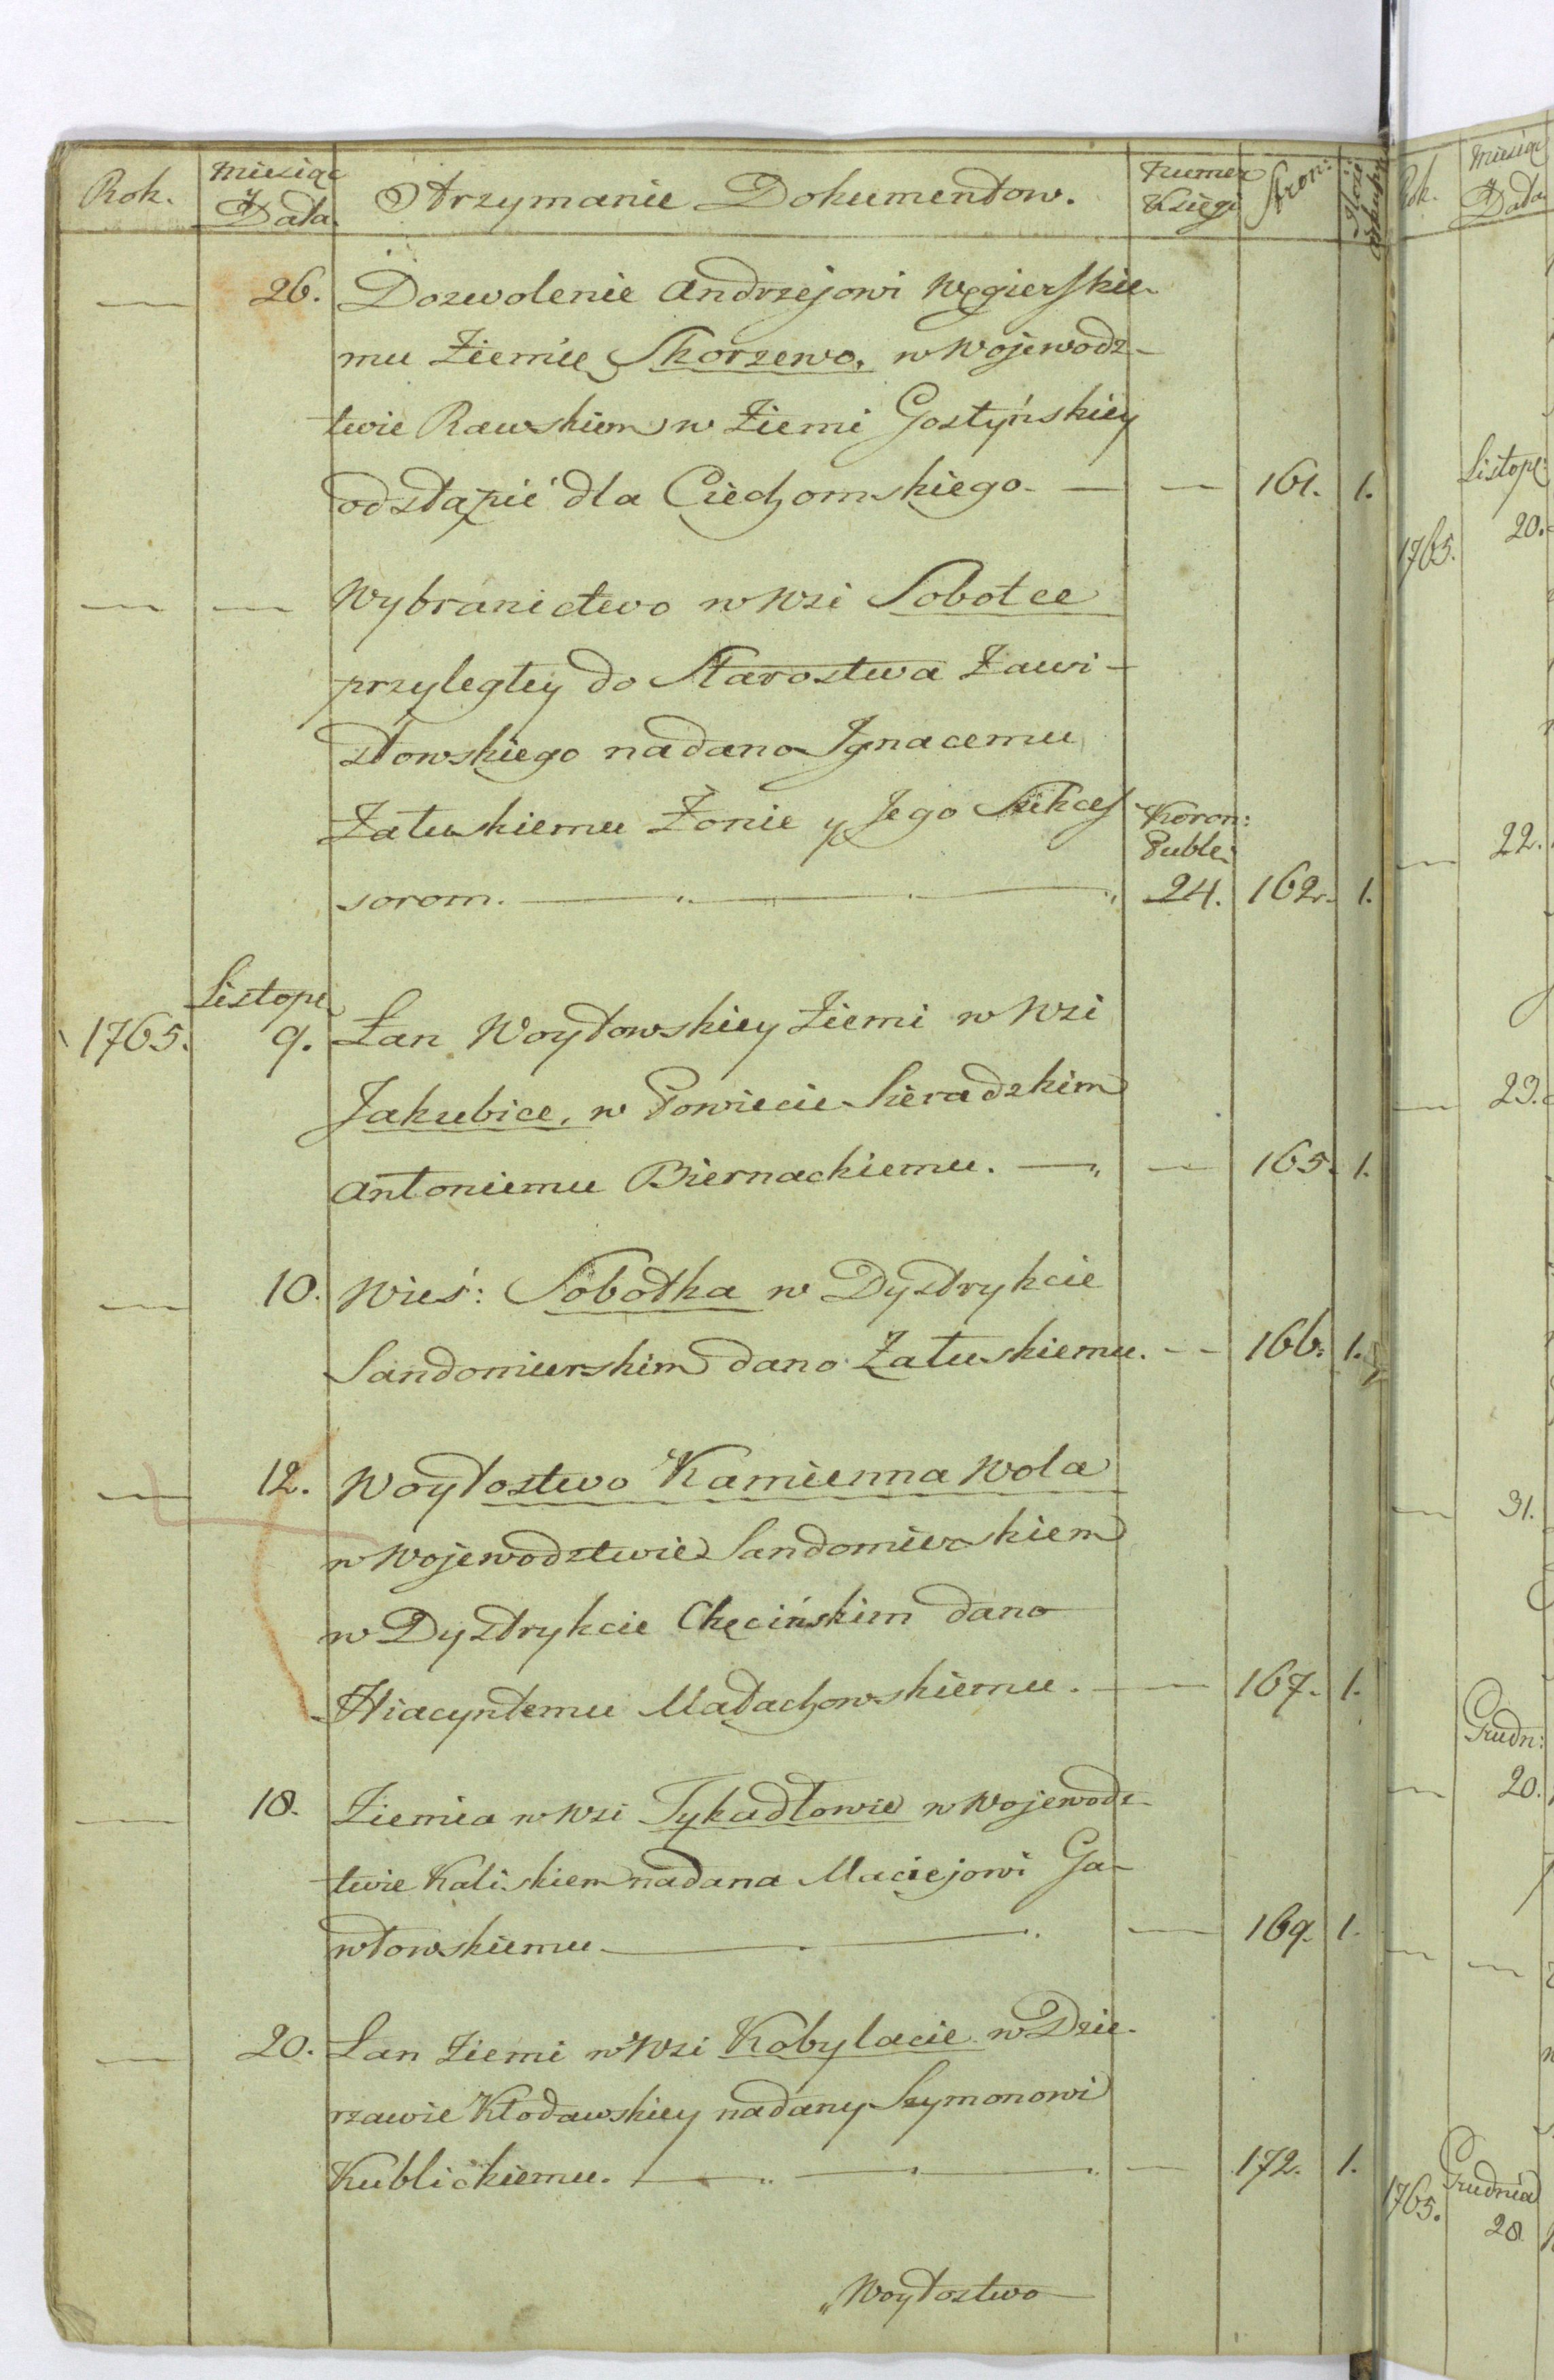 Rok. Miesiąc y Data. Otrzymanie Dokumentow. Numer Księgi Stron:
— 26. Dozwolenie Andrzejowi Węgierskie-
mu Ziemię Skorzewo, w Wojewodz-
twie Rawskiem w Ziemi Gostyńskiey
odstąpić dla Ciechomskiego. — — 161. 1.
— — Wybranictwo w Wsi Sobotce
przyległey do Starostwa Zawi-
stowskiego nadano Ignacemu
Załuskiemu Żonie y Jego Sukces
Koron:
Publ:
sorom. — 24. 162. 1.
Listop:
1765. 9. Łan Woytowskiey Ziemi w Wsi
Jakubice, w Powiecie Sieradzkim
Antoniemu Biernackiemu. — — 165. 1.
— 10. Wieś: Sobotka w Dystrykcie
Sandomierskim dano Załuskiemu. — 166. 1.
— 12. Woytostwo Kamienna Wola
w Wojewodztwie Sandomierskiem
w Dystrykcie Chęcińskim dano
Hiacyntemu Małachowskiemu. — 167. 1.
— 18. Ziemia w Wsi Tykadłowie w Wojewodz-
twie Kaliskiem nadana Maciejowi Ga-
włowskiemu — — 169. 1.
— 20. Łan Ziemi w Wsi Kobylacie w Dzie-
rzawie Kłodawskiey nadany Szymonowi
Kublickiemu. — — 172. 1.
„Woytostwo
Rok. Miesiąc y Data
Listop:
1765. 20.
— 22.
— 23.
— 31.
Grudn:
— 20.
— —
Grudnia
1765. 28